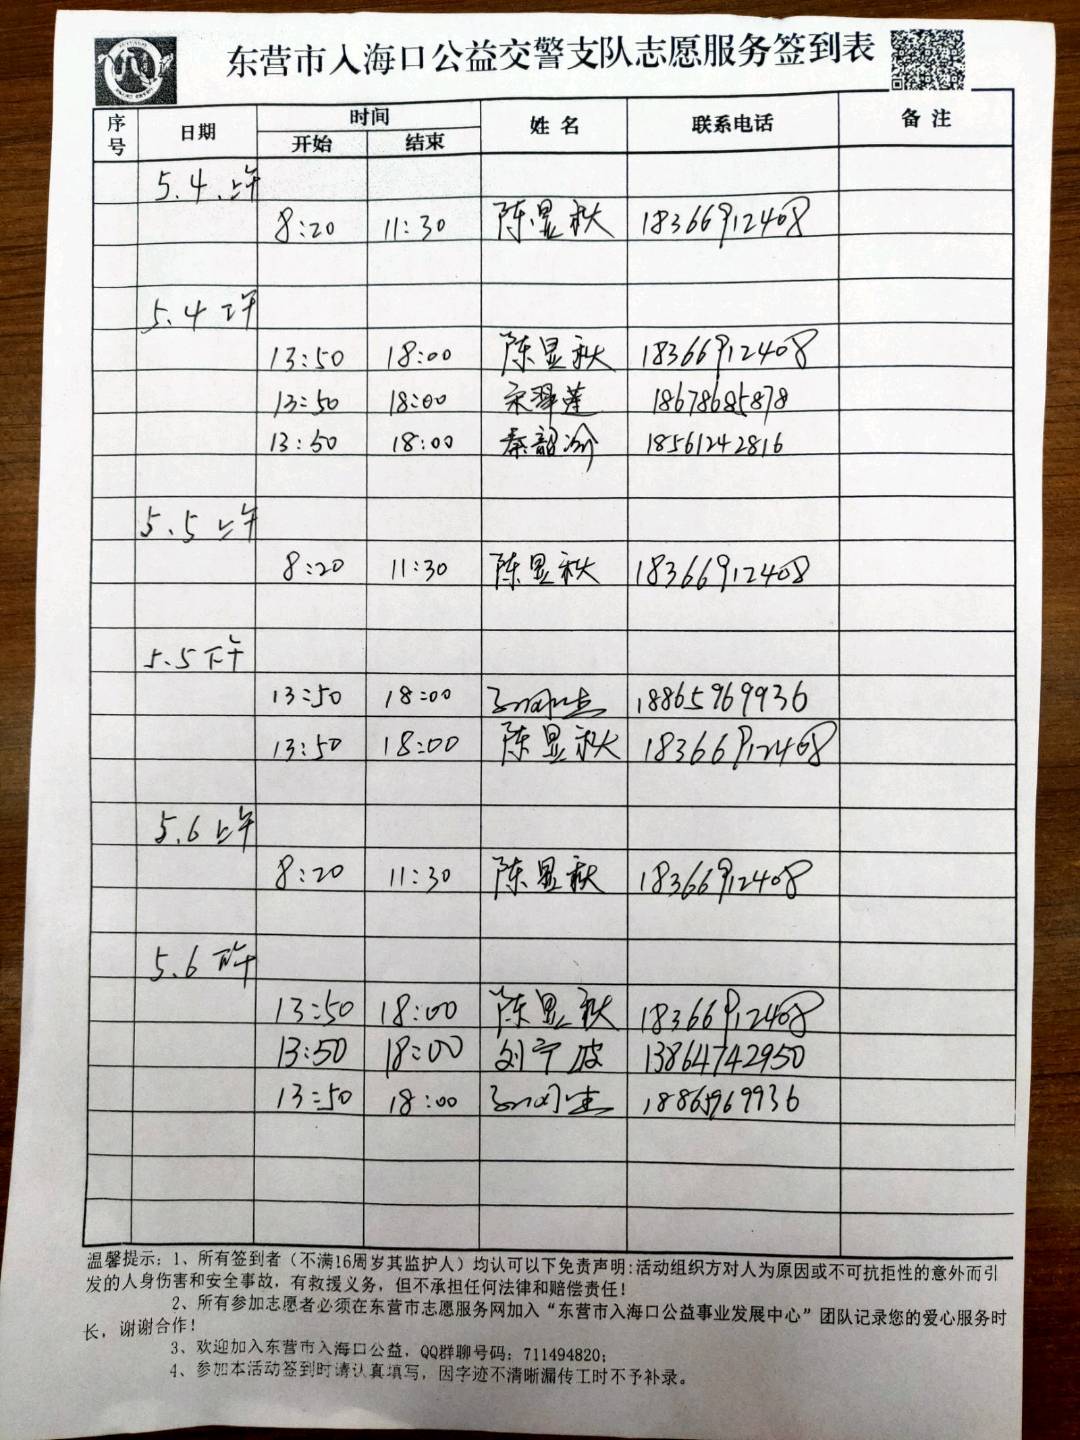 东营市入海口公益交警支队志愿服务签到表
序号 日期 时间 姓名 联系电话 备注
开始 结束
5.4.上午
8:20 11:30 陈显秋 18366912408
5.4 下午
13:50 18:00 陈显秋 18366912408
13:50 18:00 宋翠莲 18678685878
13:50 18:00 秦韶 18561242816
5.5 上午
8:20 11:30 陈显秋 18366912408
5.5 下午
13:50 18:00 18865969936
13:50 18:00 陈显秋 18366912408
5.6 上午
8:20 11:30 陈显秋 18366912408
5.6 下午
13:50 18:00 陈显秋 18366912408
13:50 18:00 刘宁波 13864742950
13:50 18:00 18865969936
温馨提示：1、所有签到者（不满16周岁其监护人）均认可以下免责声明:活动组织方对人为原因或不可抗拒性的意外而引
发的人身伤害和安全事故，有救援义务，但不承担任何法律和赔偿责任！
2、所有参加志愿者必须在东营市志愿服务网加入“东营市入海口公益事业发展中心”团队记录您的爱心服务时
长，谢谢合作！
3、欢迎加入东营市入海口公益，QQ群聊号码：711494820；
4、参加本活动签到时请认真填写，因字迹不清晰漏传工时不予补录。